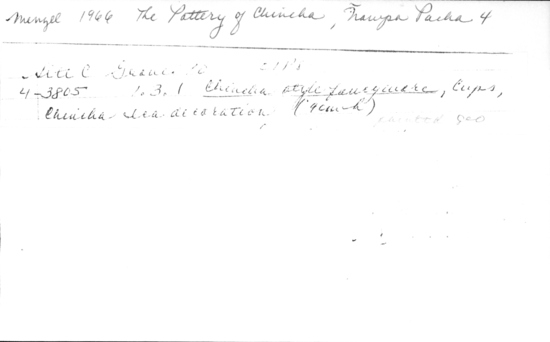 Menzel 1966 The Pottery of Chincha, Ñawpa Pacha 4
Site C Grave
4-3805 p. 3. 1 Chincha style fancyware, Cups,
Chincha-Ica decoration
geo